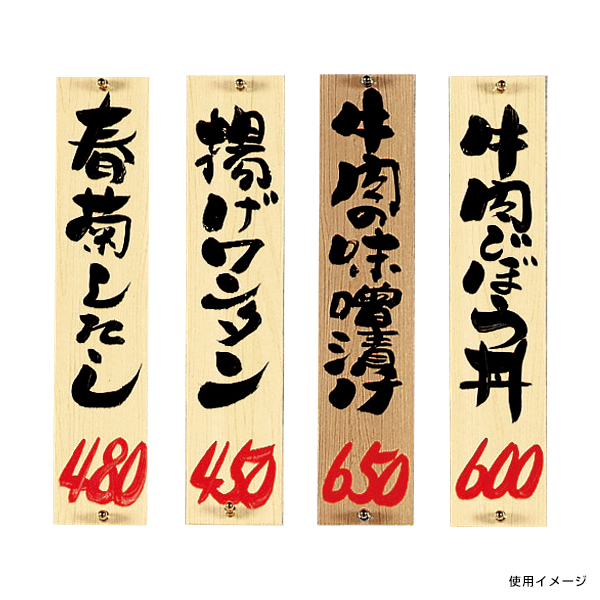 春菊したし
480
揚げワンタン
450
牛肉の味噌漬け
650
牛肉ごぼう丼
600
使用イメージ